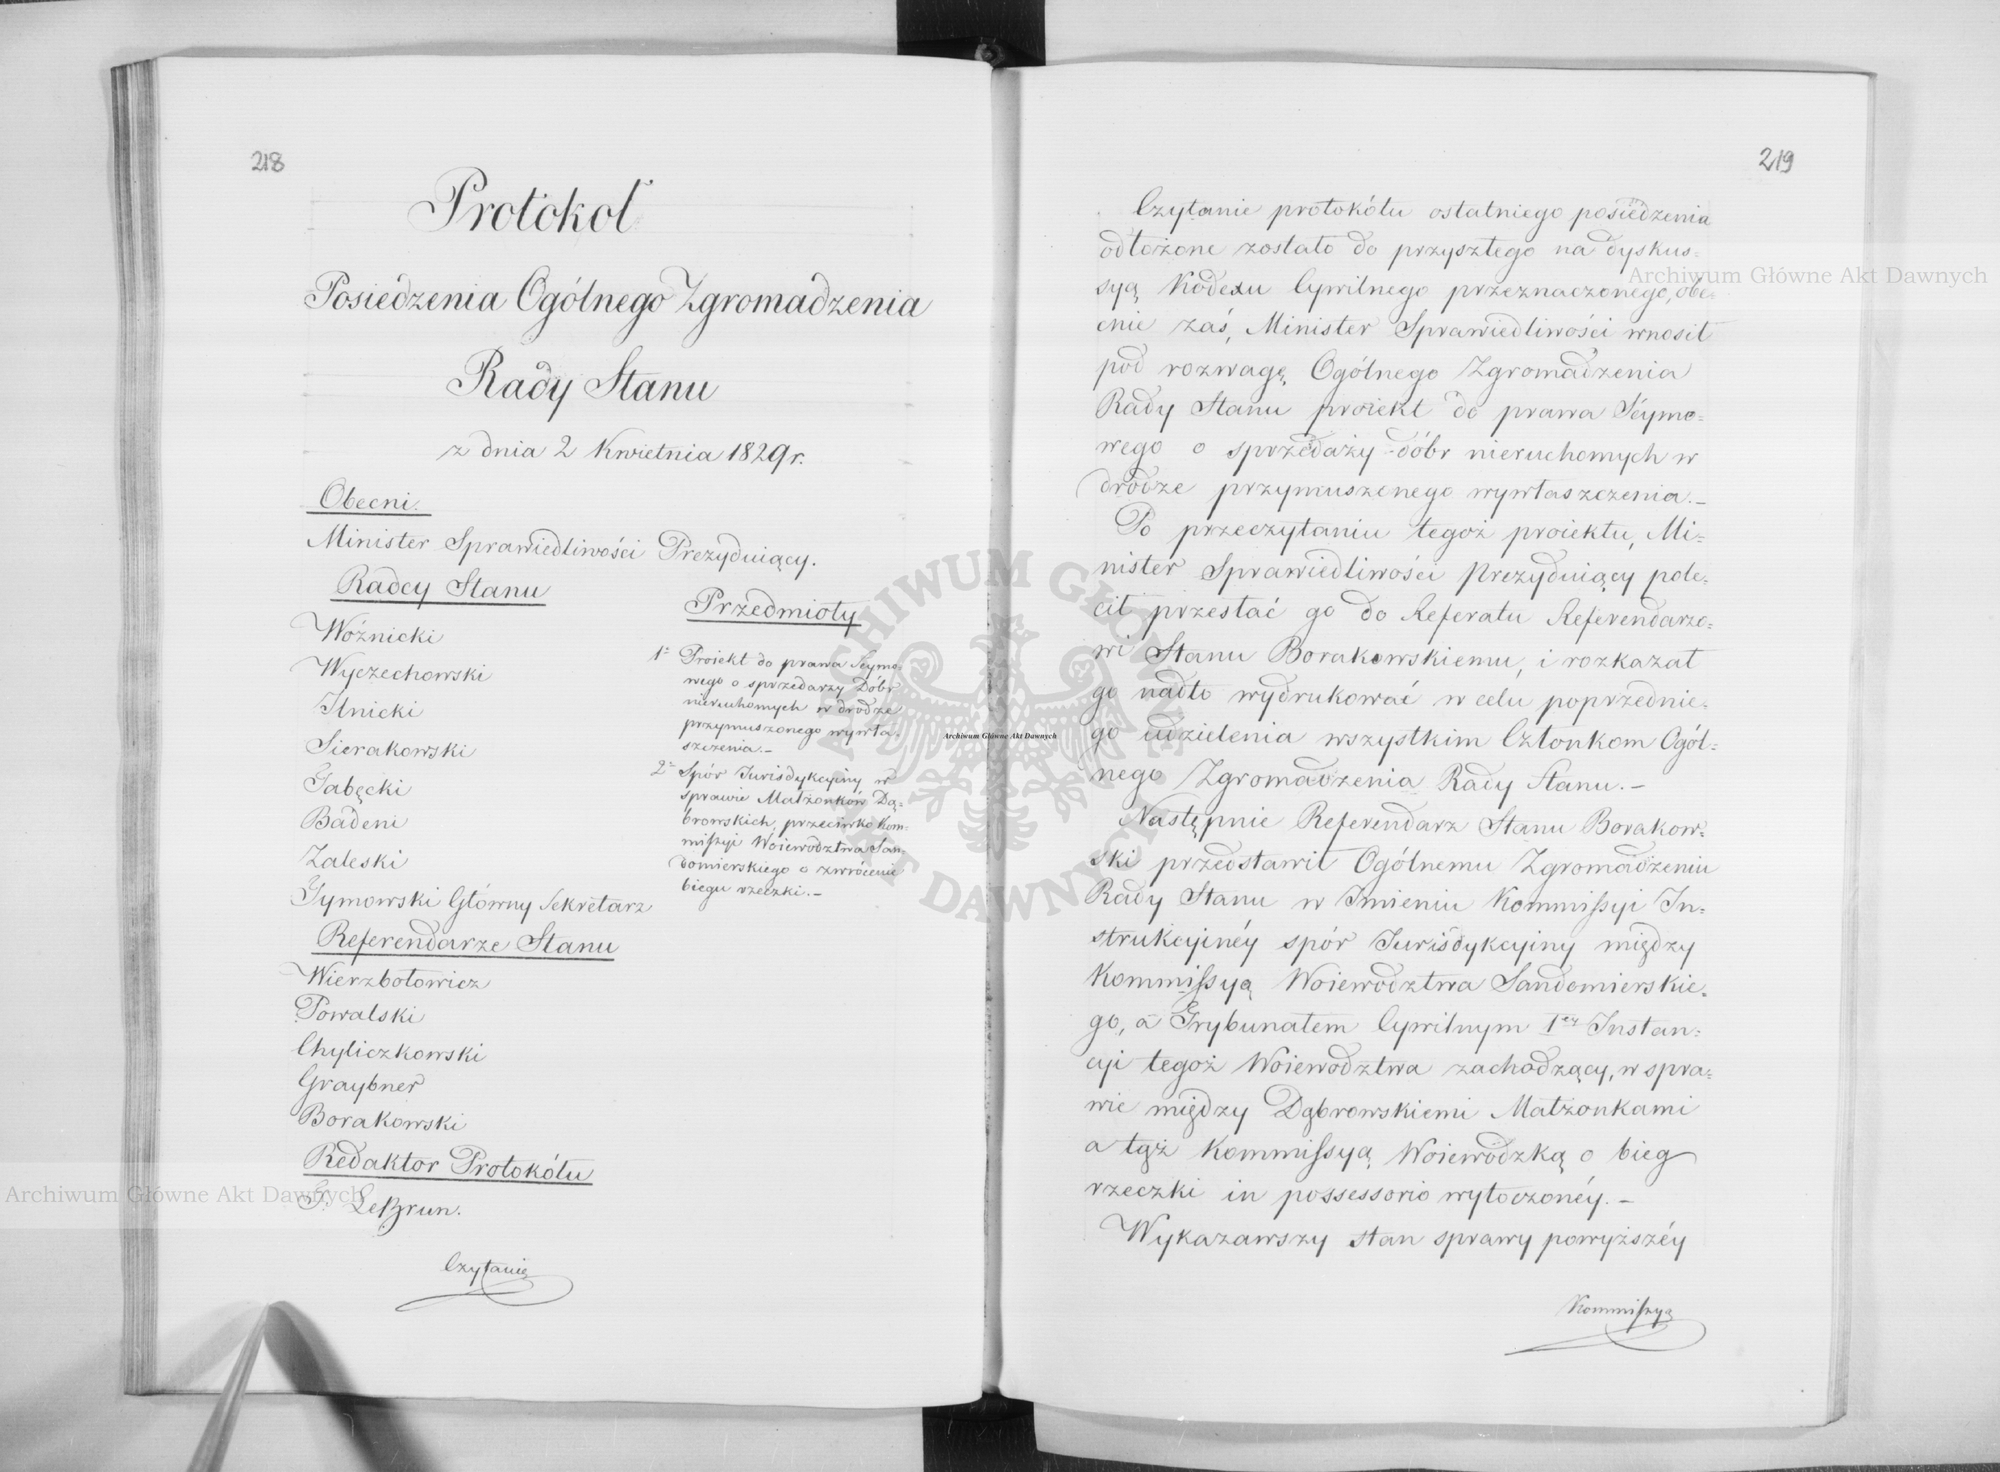 218
Protokół
Posiedzenia Ogólnego Zgromadzenia
Rady Stanu
z dnia 2 Kwietnia 1829 r.
Obecni.
Minister Sprawiedliwości Prezyduiący.
Radcy Stanu
Woźnicki
Wyczechowski
Ilnicki
Sierakowski
Gabęcki
Badeni
Zaleski
Tymowski Główny Sekretarz
Referendarze Stanu
Wierzbołowicz
Powalski
Chyliczkowski
Graybner
Borakowski
Redaktor Protokółu
G. LeBrun.
Czytanie
Przedmioty
1º Proiekt do prawa Seymo-
wego o sprzedarzy Dóbr
nieruchomych w drodze
przymuszonego wywła-
szczenia.-
2º Spór Jurisdykcyiny w
sprawie Małżonków Dą-
browskich, przeciwko Kom-
missyi Woiewództwa San-
domierskiego o zwrócenie
biegu rzeczki.-
219
Czytanie protokółu ostatniego posiedzenia
odłożone zostało do przyszłego na dyskus-
syą Kodexu Cywilnego przeznaczonego, obe-
cnie zaś, Minister Sprawiedliwości wnosił
pod rozwagę Ogólnego Zgromadzenia
Rady Stanu proiekt do prawa Séymo-
wego o sprzedaży dóbr nieruchomych w
drodze przymuszonego wywłaszczenia.-
Po przeczytaniu tegoż proiektu, Mi-
nister Sprawiedliwości Prezyduiący pole-
cił przesłać go do Referatu Referendarzo-
wi Stanu Borakowskiemu, i rozkazał
go nadto wydrukować w celu poprzednie-
go udzielenia wszystkim Członkom Ogól-
nego Zgromadzenia Rady Stanu.-
Następnie Referendarz Stanu Borakow-
ski przedstawił Ogólnemu Zgromadzeniu
Rady Stanu w Imieniu Kommissyi In-
strukcyinéy spór Jurisdykcyiny między
Kommissyą Woiewództwa Sandomierskie-
go, a Trybunałem Cywilnym 1ey Instan-
cyi tegoż Woiewództwa zachodzący, w spra-
wie między Dąbrowskiemi Małżonkami
a tąż Kommissyą Woiewódzką o bieg
rzeczki in possessorio wytoczonéy.-
Wykazawszy stan sprawy powyższéy
Kommissya
Archiwum Główne Akt Dawnych
Archiwum Główne Akt Dawnych
Archiwum Główne Akt Dawnych
ARCHIWUM GŁÓWNE AKT DAWNYCH